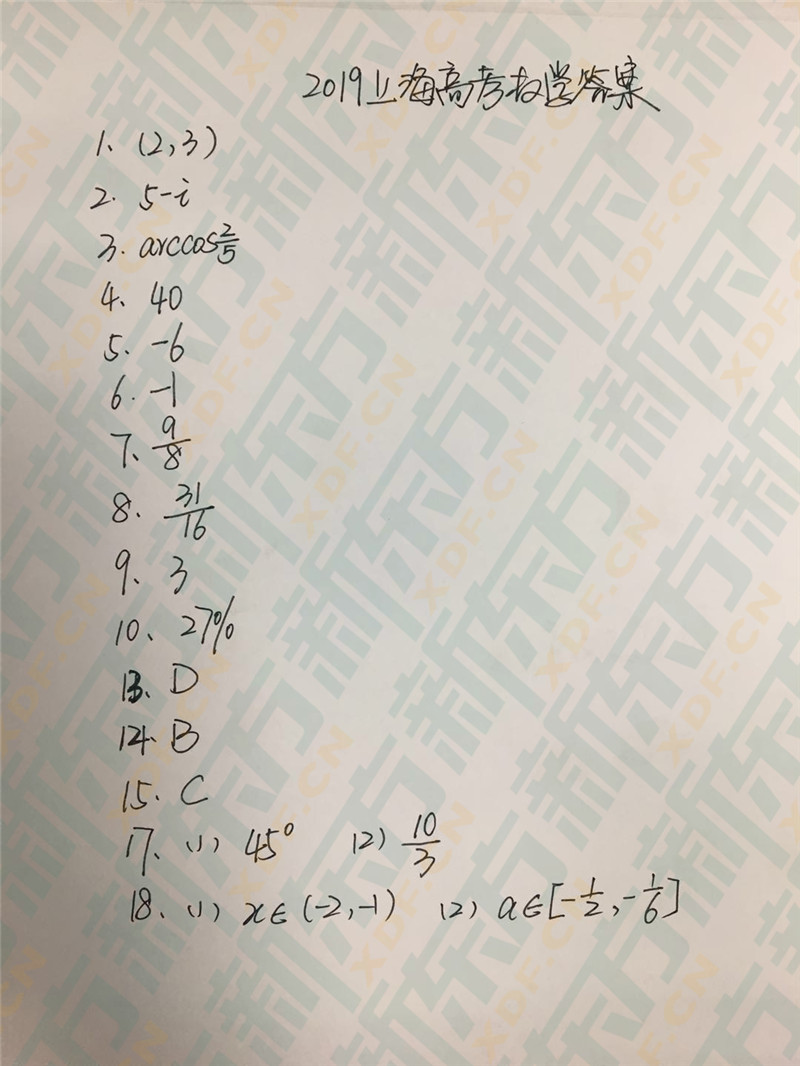 2019上海高考数学答案
1. (2,3)
2. 5-i
3. arccos2/5
4. 40
5. -6
6. -1
7. 9/8
8. 31/16
9. 3
10. 27%
13. D
14. B
15. C
17. (1) 45° (2) 10/3
18. (1) x∈(-2,-1) (2) a∈[-1/2,-1/6]
新东方 XDF.CN